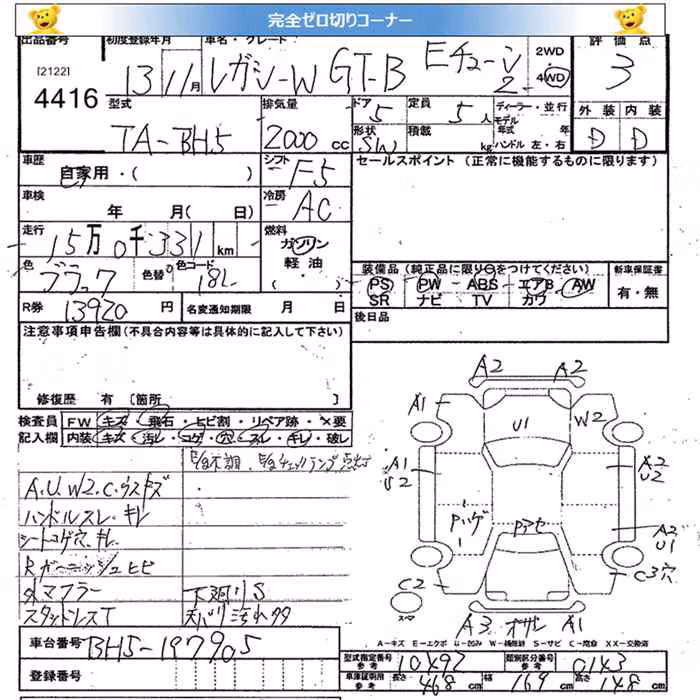 完全ゼロ切りコーナー
出品番号 初度登録年月 車名・グレード 2WD 4WD 評価点
[2122]
4416 13年 11月 レガシーW GT-B Eチューン2 3
型式 排気量 ドア 定員 ディーラー・並行 外装 内装
TA-BH5 2000cc 5 5人 モデル年式 年 D D
形状 SW 積載 kg ハンドル 左・右
車歴 シフト セールスポイント(正常に機能するものに限ります)
自家用・( ) F5
車検 冷房
年 月( 日) AC
走行 燃料
15万0千331km ガソリン
色 色替 色コード 軽・油
ブラック 18L ( )
装備品(純正品に限り○をつけてください) 新車保証書
PS PW ABS エアB AW 有・無
SR ナビ TV カワ
R券 13920円 名変通知期限 月 日 後日品
注意事項申告欄(不具合内容等は具体的に記入して下さい)
修復歴 有 [箇所 ]
検査員 FW キズ・飛石・ヒビ割・リペア跡・×要
記入欄 内装 キズ・汚レ・コゲ・穴・スレ・キレ・破レ
A.U.W2.C.ウスキズ
ハンドルスレ・キレ
シートコゲ穴、キレ
Rガーニッシュヒビ
外マフラー 下廻りS
スタッドレスT 天バリ汚れ
A2 A2
A1 U1 W2
A1 U2 A2 U2
Pハゲ Pアセ A2 U1
C2 C3穴
A3 A1
A-キズ E-エクボ U-凹み W-補修跡 S-サビ C-腐食 XX-交換済
車台番号 BH5-197905
登録番号
型式指定番号 参考 10492 類別区分番号 参考 0143
車庫証明用 参考 長さ 468cm 幅 169cm 高さ 148cm